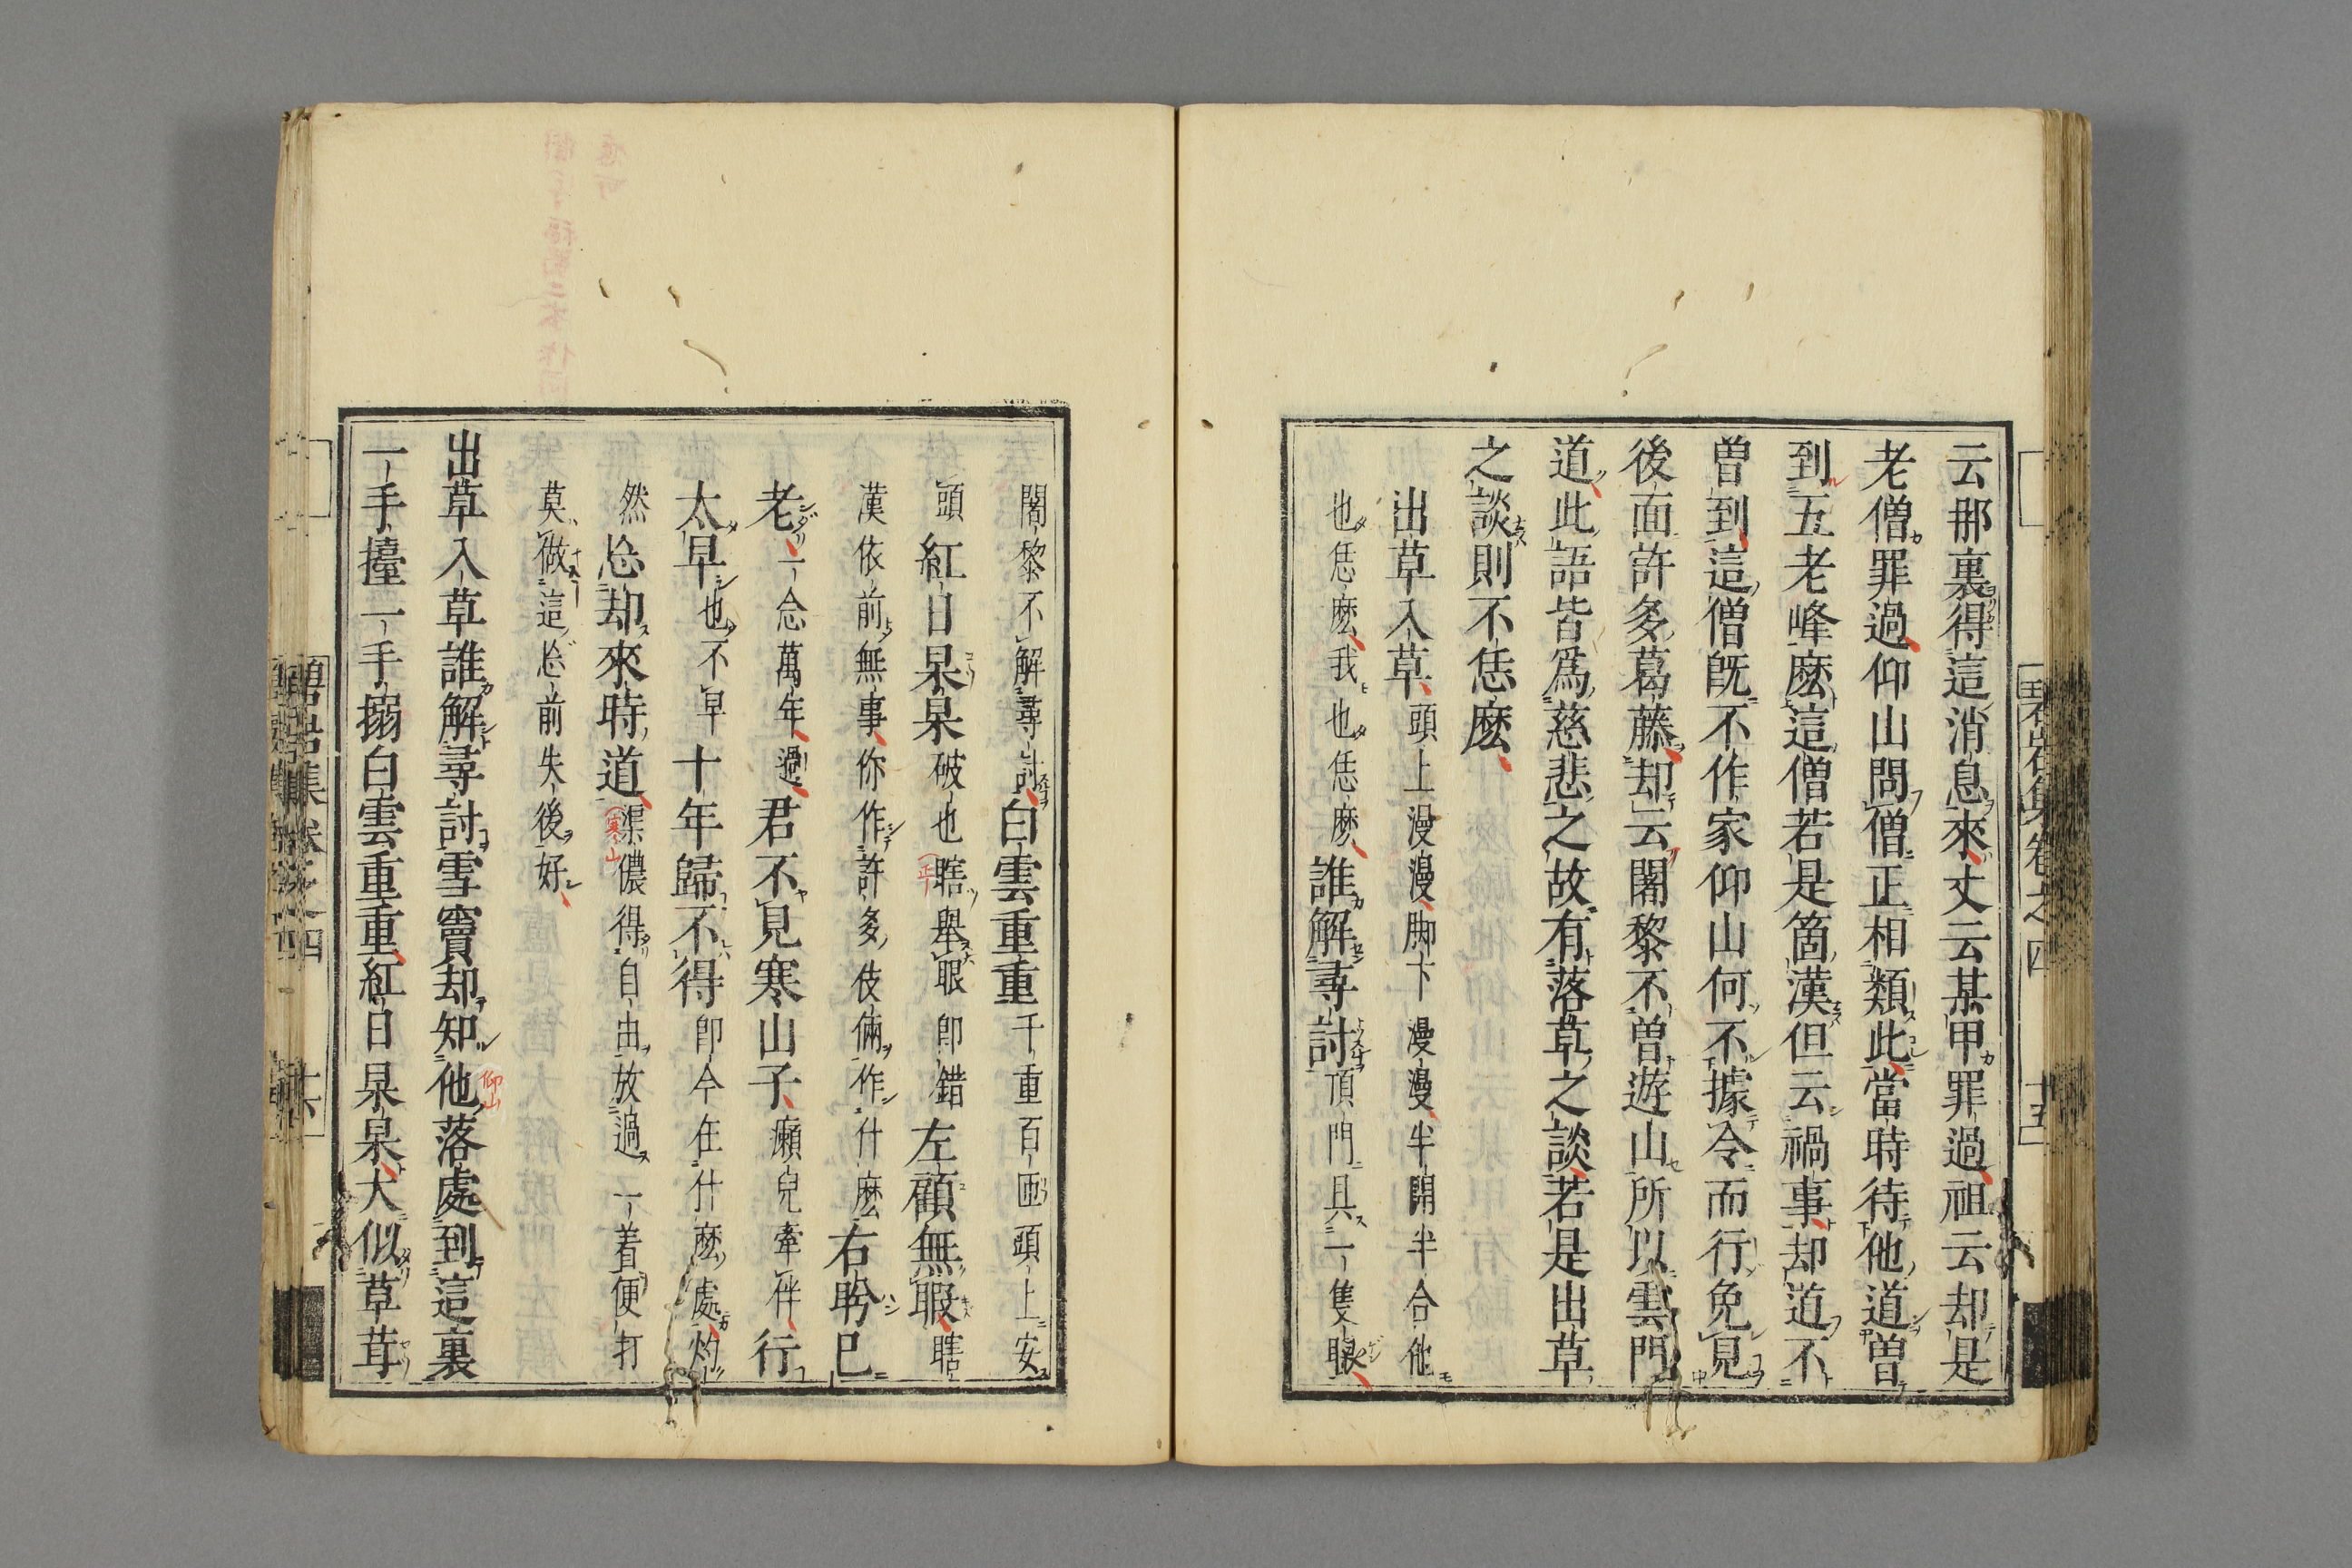 云那裏得這消息來丈云某甲罪過祖云却是
老僧罪過仰山問僧正相類此當時待他道曾
到五老峰麽這僧若是箇漢但云禍事却道不
曾到這僧旣不作家仰山何不據令而行免見
後面許多葛藤却云闍黎不曾遊山所以雲門
道此語皆爲慈悲之故有落草之談若是出草
之談則不恁麽
出草入草頭上漫漫脚下漫漫半開半合他
也恁麽我也恁麽誰解尋討頂門具一隻眼
碧岩集卷之四
十五
闍黎不解尋討白雲重重千重百匝頭上安
頭紅日杲杲破也瞎舉眼卽錯左顧無瑕瞎
漢依前無事你作許多伎倆作什麽右盻已
老一念萬年過君不見寒山子癩兒牽伴行
太早也不早十年歸不得卽今在什麽處灼
然忘却來時道渠儂得自由放過一着便打
莫做這忘前失後好
出草入草誰解尋討雪竇却知他落處到這裏
一手擡一手搦白雲重重紅日杲杲大似草茸
仰山
寒山
碧岩集卷之四
十六